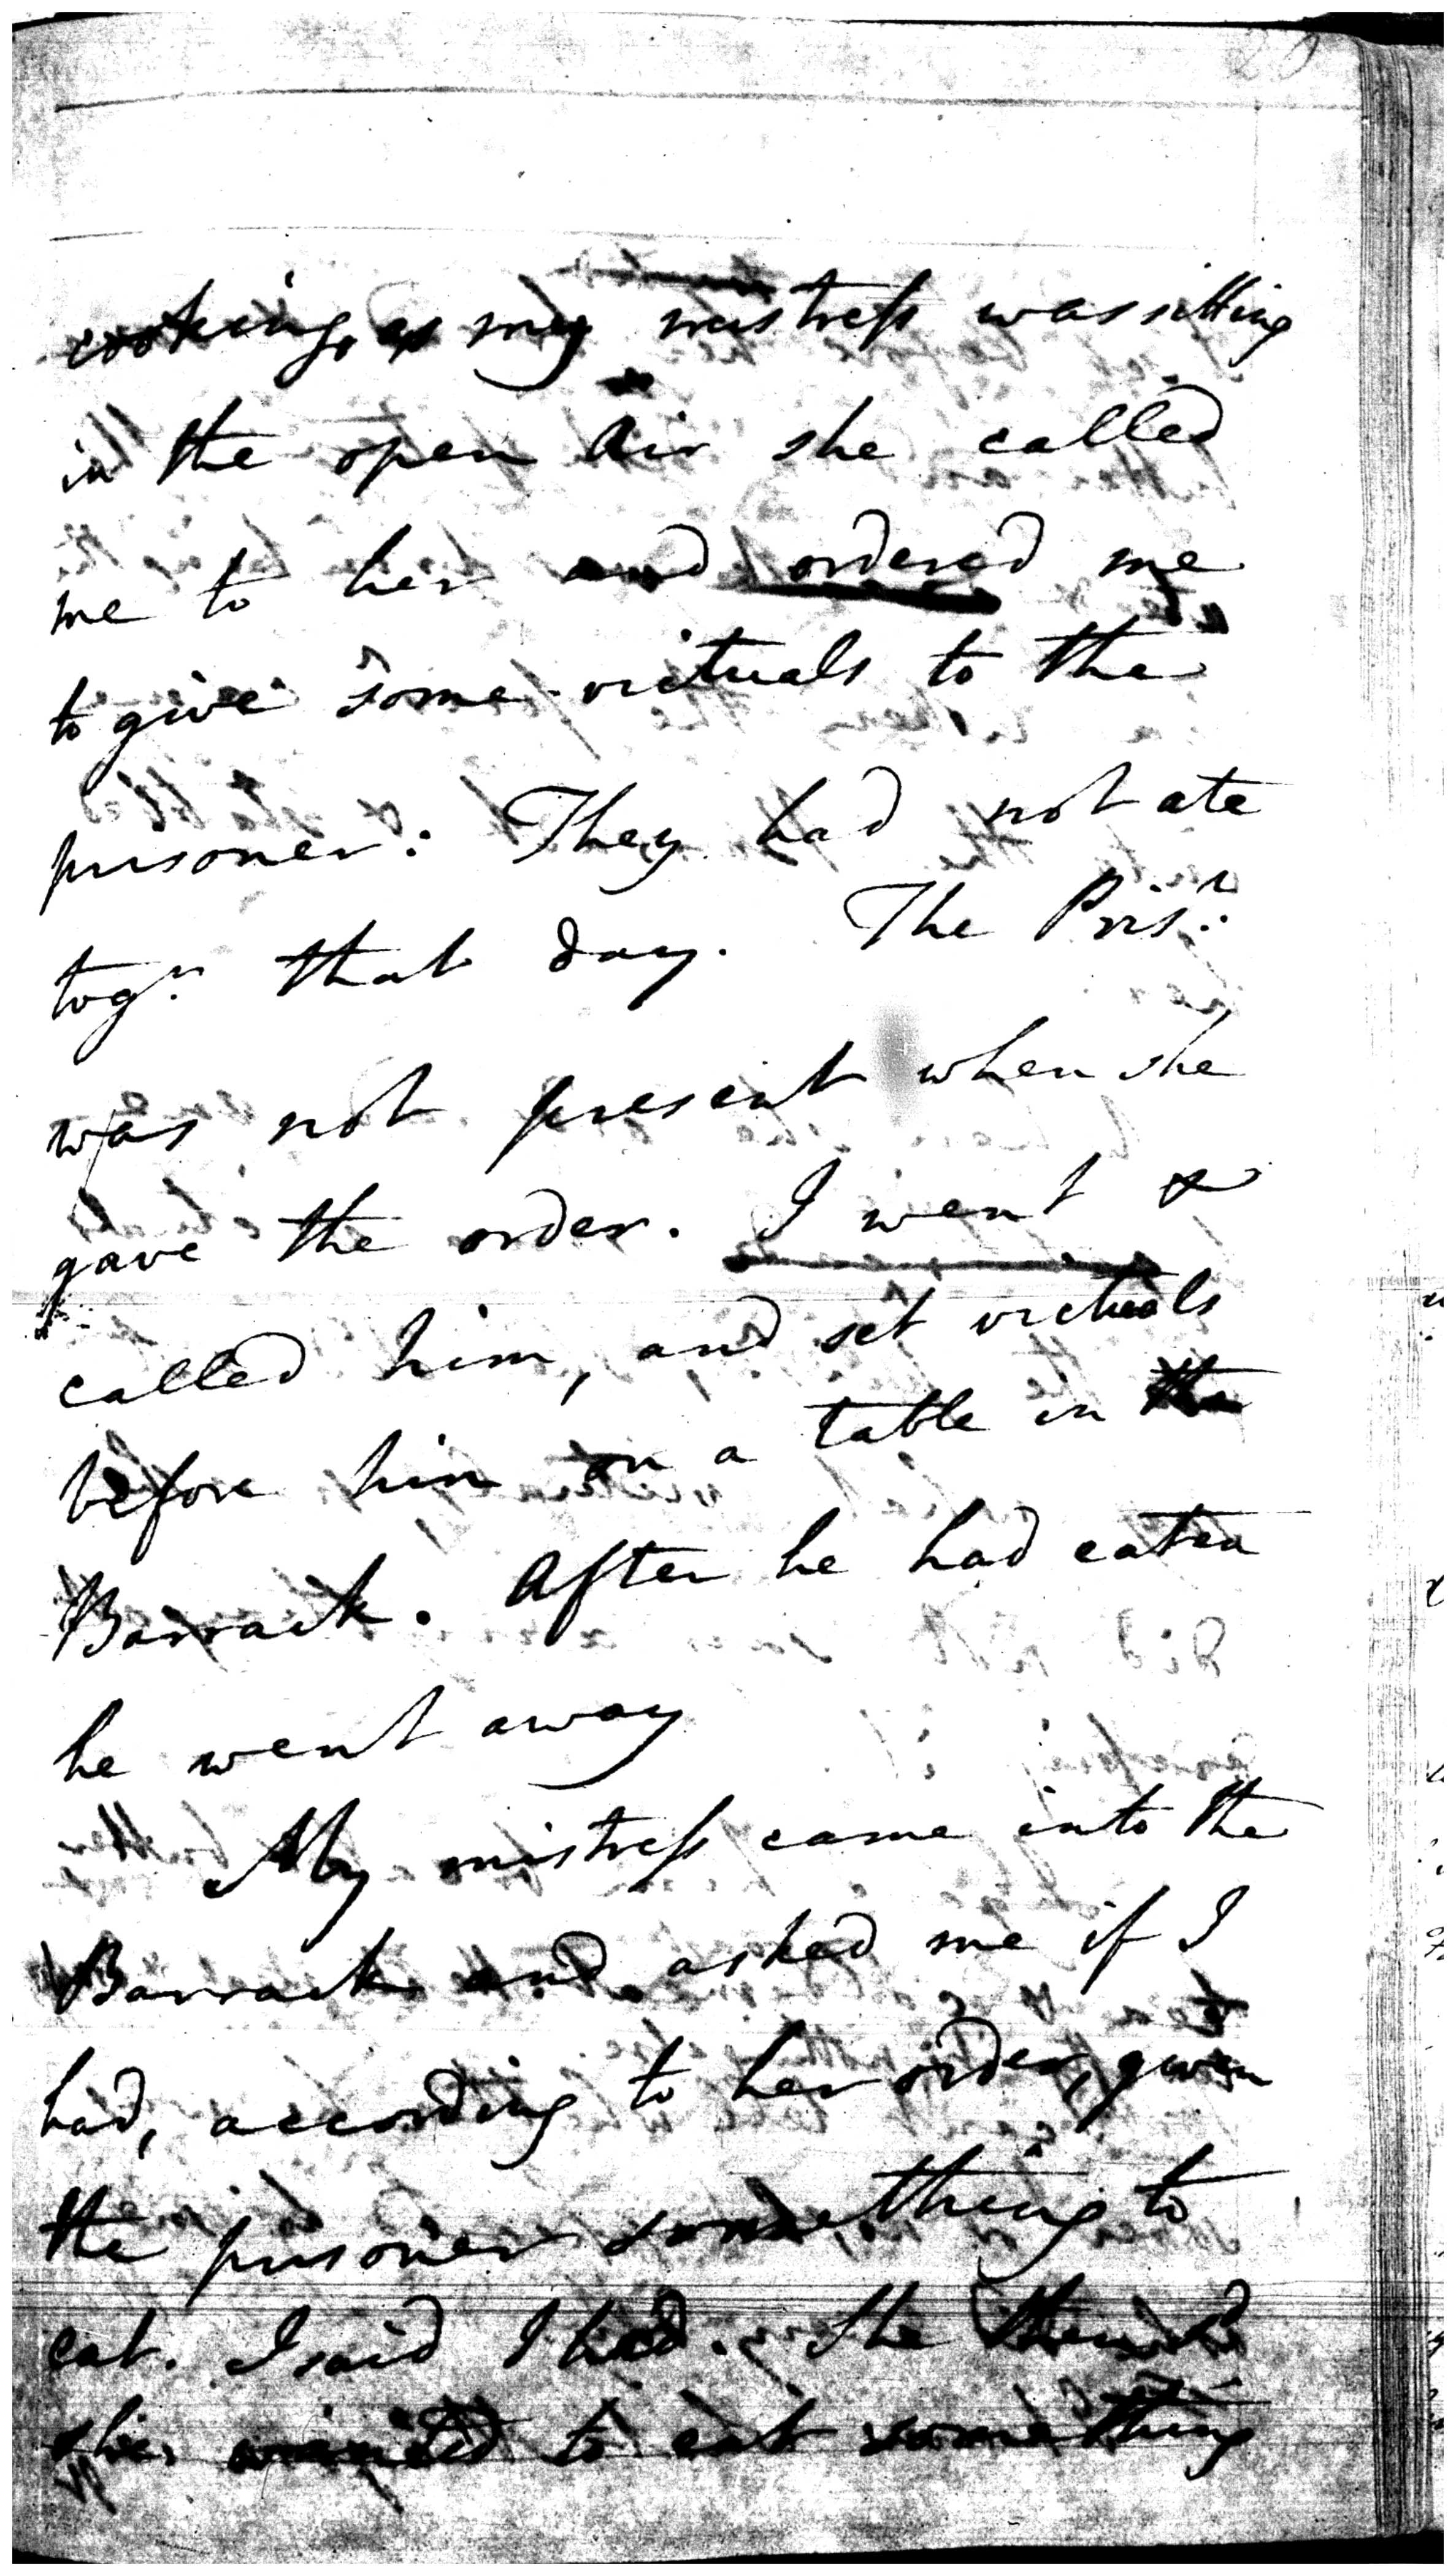 20
cooking, as my mistress was sitting
in the open Air she called
me to her and ordered me
to give some victuals to the
prisoner: They had not ate
togr. that day. The Prisr.
was not present when she
gave the order. I went &
called him, and set victuals
before him on a table in the
Barrack. After he had eaten
he went away
My mistress came into the
Barrack and asked me if I
had, according to her order, given
the prisoner something to
eat. I said I had. She then said
she wanted to eat something